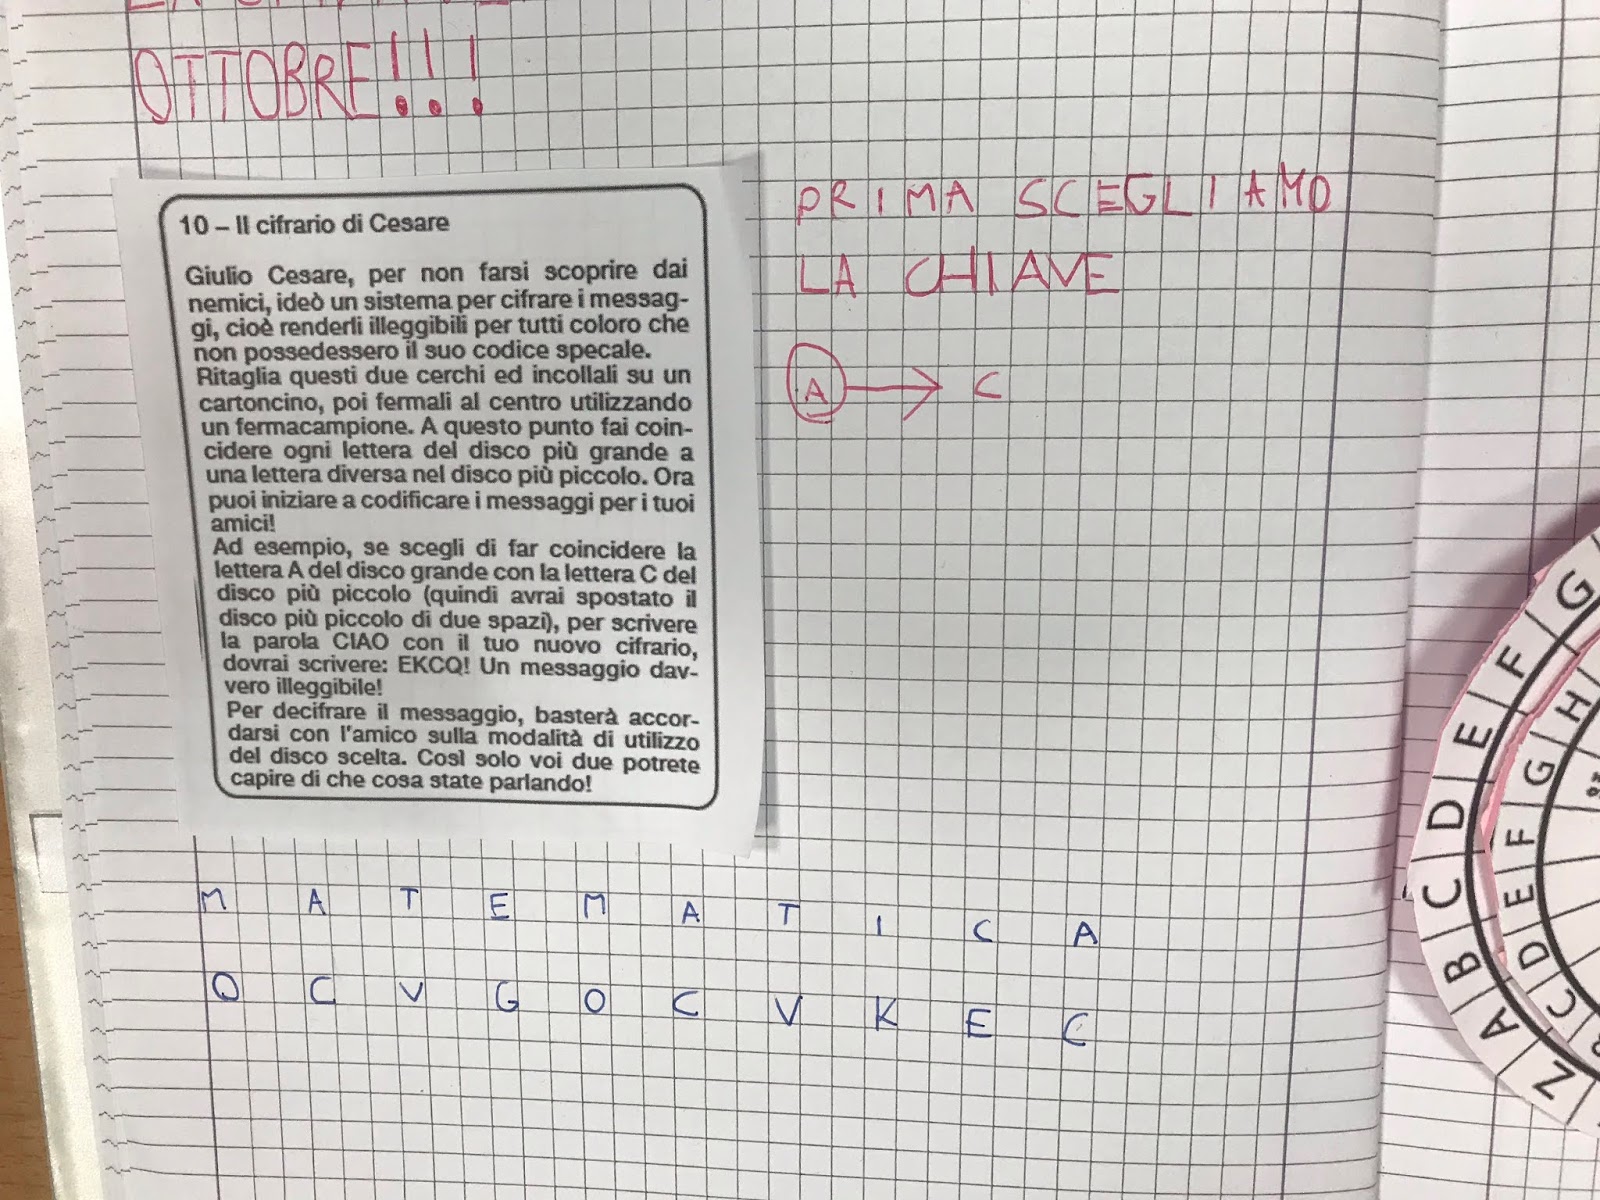 OTTOBRE!!!
10 – Il cifrario di Cesare
Giulio Cesare, per non farsi scoprire dai
nemici, ideò un sistema per cifrare i messag-
gi, cioè renderli illeggibili per tutti coloro che
non possedessero il suo codice specale.
Ritaglia questi due cerchi ed incollali su un
cartoncino, poi fermali al centro utilizzando
un fermacampione. A questo punto fai coin-
cidere ogni lettera del disco più grande a
una lettera diversa nel disco più piccolo. Ora
puoi iniziare a codificare i messaggi per i tuoi
amici!
Ad esempio, se scegli di far coincidere la
lettera A del disco grande con la lettera C del
disco più piccolo (quindi avrai spostato il
disco più piccolo di due spazi), per scrivere
la parola CIAO con il tuo nuovo cifrario,
dovrai scrivere: EKCQ! Un messaggio dav-
vero illeggibile!
Per decifrare il messaggio, basterà accor-
darsi con l'amico sulla modalità di utilizzo
del disco scelta. Così solo voi due potrete
capire di che cosa state parlando!
PRIMA SCEGLIAMO
LA CHIAVE
A → C
M A T E M A T I C A
O C V G O C V K E C
Z A B C D E F G
B C D E F G H